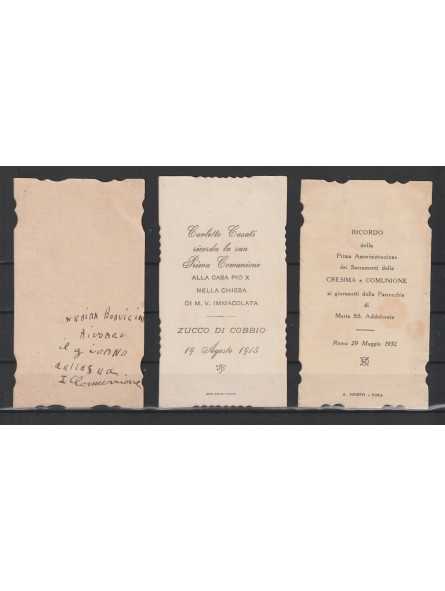 RICORDO
I Comunione
Carletto Casati
ricorda la sua
Prima Comunione
ALLA CASA PIO X
NELLA CHIESA
DI M. V. IMMACOLATA
ZUCCO DI GOBBIO
19 Agosto 1915
RICORDO
della
Prima Amministrazione
dei Sacramenti della
CRESIMA e COMUNIONE
ai giovanetti della Parrocchia
di
Maria SS. Addolorata
Roma 29 Maggio 1932